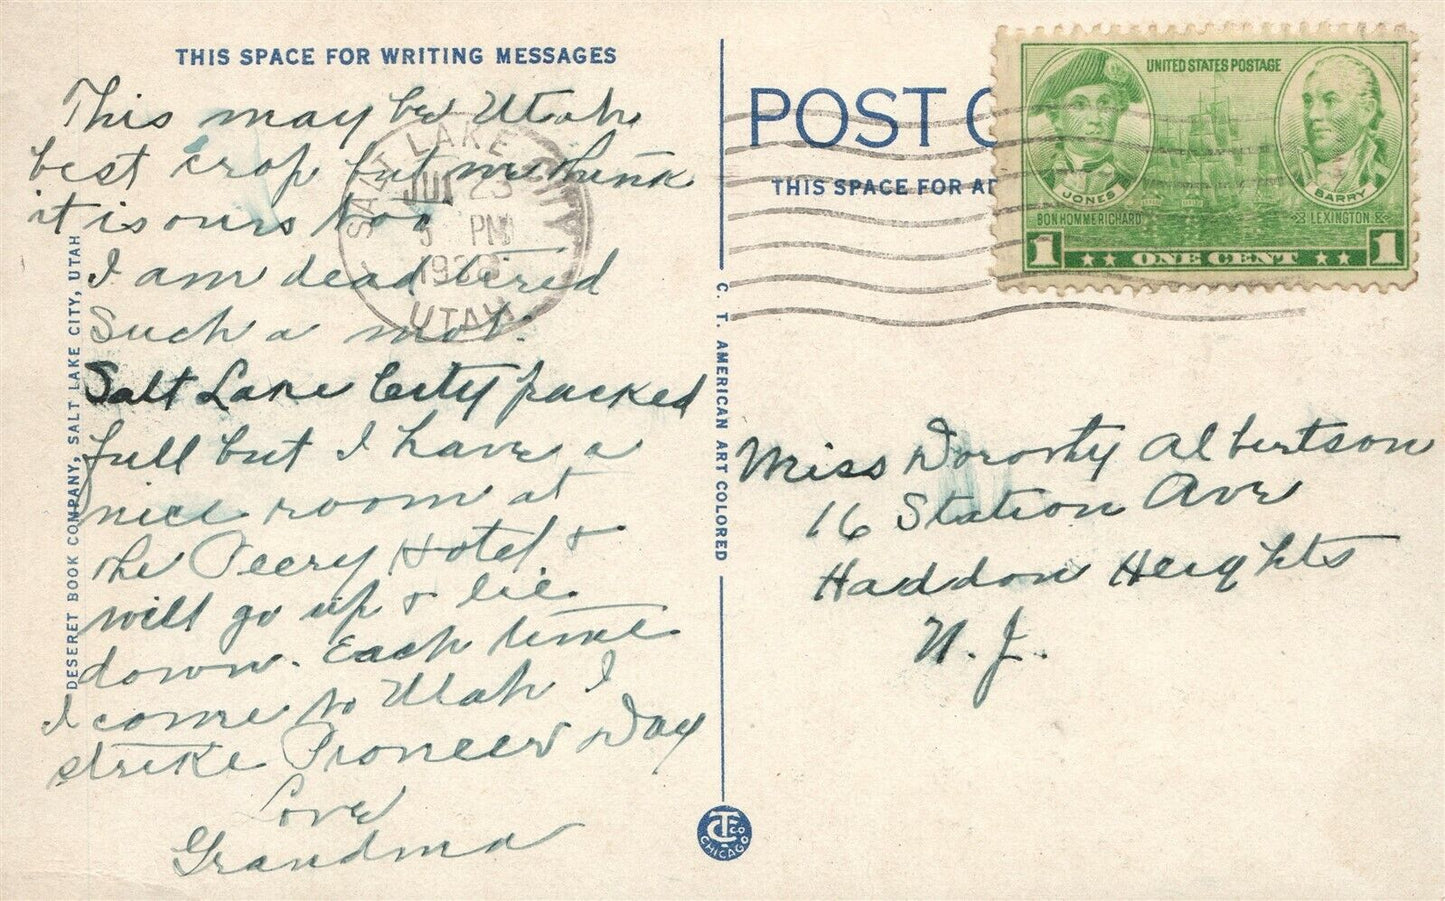 THIS SPACE FOR WRITING MESSAGES
This may be Utah
best crop but me think
it is ours too
I am dead tired
Such a mob.
Salt Lake City packed
full but I have a
nice room at
the Peery Hotel &
will go up & lie
down. Each time
I come to Utah I
strike Pioneer Day
Love
Grandma
DESERET BOOK COMPANY, SALT LAKE CITY, UTAH
C. T. AMERICAN ART COLORED
CT CO
CHICAGO
SALT LAKE CITY
23
PM
UTAH
POST C
THIS SPACE FOR AD
UNITED STATES POSTAGE
JONES
BARRY
BON HOMME RICHARD
LEXINGTON
1 ONE CENT 1
Miss Dorothy Albertson
16 Station Ave
Haddon Heights
N. J.